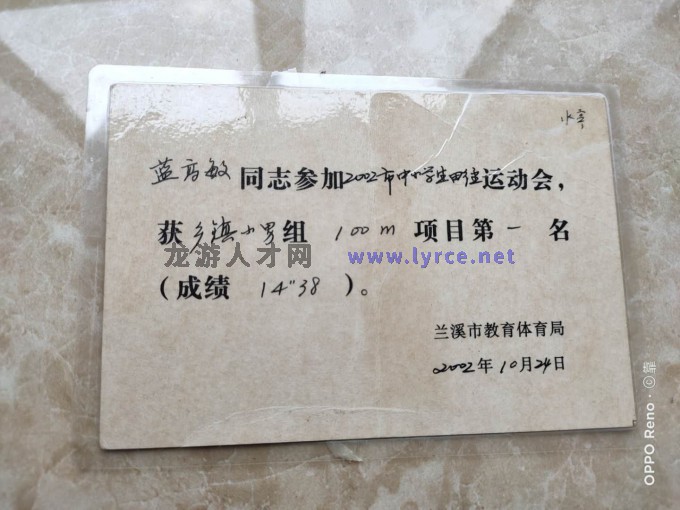 蓝高敏同志参加2002市中小学生田径运动会，
获乡镇小男组 100m 项目第一名
龙游人才网 www.lyrce.net
（成绩 14"38 ）。
兰溪市教育体育局
2002年10月24日
OPPO Reno · ©靠